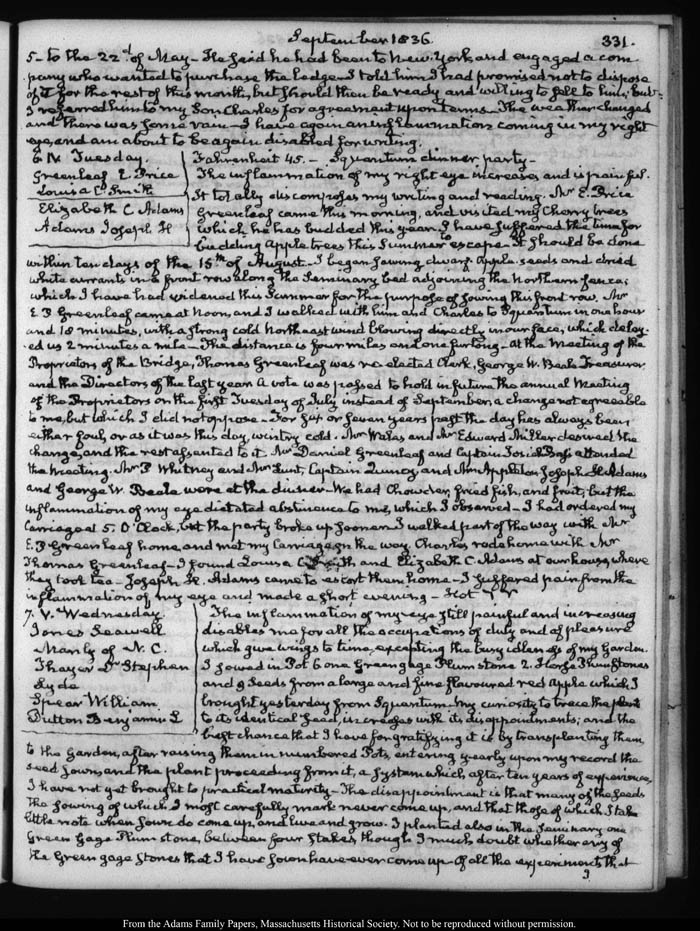 September 1836.
331.
5- to the 22d. of May- He said he had been to New-York, and engaged a com-
pany who wanted to purchase the ledge- I told him I had promised not to dispose
of it for the rest of this month, but should then be ready and willing to sell to him; but
I referred him to my Son Charles for agreement upon terms- The weather changed
and there was some rain- I have again an inflammation coming in my right
eye, and am about to be again disabled for writing.
6. IV. Tuesday.
Greenleaf E. Price
Louisa C. Smith
Elizabeth C Adams
Adams Joseph H
Fahrenheit 45.- Squantum dinner party-
The inflammation of my right eye increases and is painful.
It totally discomposes my writing and reading. Mr E. Price
Greenleaf came this morning, and visited my Cherry trees
which he has budded this year. I have suffered the time for
budding Apple trees this Summer to escape- It should be done
within ten days of the 15th of August- I began sowing dwarf apple seeds and dried
white currants in a front row along the Seminary bed adjoining the Northern fence;
which I have had widened this Summer for the purpose of sowing this front row. Mr
E. P Greenleaf came at Noon, and I walked with him and Charles to Squantum in one hour
and 18 minutes, with a strong cold Northeast wind blowing directly in our face, which delay-
ed us 2 minutes a mile- The distance is four miles and one furlong- At the Meeting of the
Proprietors of the Bridge, Thomas Greenleaf was re-elected Clerk, George W. Beale Treasurer
and the Directors of the last year. A vote was passed to hold in future the annual Meeting
of the Proprietors on the first Tuesday of July instead of September, a change not agreeable
to me, but which I did not oppose- For six or seven years past the day has always been
either foul, or as it was this day, wintry cold. Mr Wales and Mr Edward Miller desired the
change, and the rest assented to it. Mr Daniel Greenleaf and Captain Josiah Bass attended
the Meeting. Mr P Whitney and Mr Lunt, Captain Quincy, and Mr Appleton, Joseph H. Adams
and George W. Beale were at the dinner- We had Chowder, fried fish, and fruit, but the
inflammation of my eye dictated abstinence to me, which I observed- I had ordered my
Carriage at 5. O'Clock, but the party broke up sooner. I walked part of the way with Mr
E. P Greenleaf home and met my Carriage on the way. Charles rode home with Mr
Thomas Greenleaf- I found Louisa C. Smith and Elizabeth C. Adams at our house, where
they took tea- Joseph H. Adams came to escort them home- I suffered pain from the
inflammation of my eye and made a short evening-
7. V. Wednesday.
Jones Seawell
Manly of N. C.
Thayer Dr Stephen
Hyde
Spear William
Dutton Benjamin L
The inflammation of my eye still painful and increasing
disables me for all the occupations of duty and of pleasure
which give wings to time, excepting the busy idleness of my Garden.
I sowed in Pot 6 one Green gage Plum stone 2. Horse Plum Stones
and 9 Seeds from a large and fine flavoured red apple which I
brought yesterday from Squantum. My curiosity to trace the plant
to its identical seed, increases with its disappointments; and the
best chance that I have for gratifying it is by transplanting them
to the Garden, after raising them in numbered Pots, entering yearly upon my record the
seed sown, and the plant proceeding from it, a system which, after ten years of experience,
I have not yet brought to practical maturity- The disappointment is that many of the seeds
the sowing of which I most carefully mark never come up, and that those of which I take
little note when sown do come up, and live and grow. I planted also in the Seminary one
Green Gage Plum stone, between four stakes, though I much doubt whether any of
the Green gage stones that I have sown have ever come up. Of all the experiments that
I
From the Adams Family Papers, Massachusetts Historical Society. Not to be reproduced without permission.